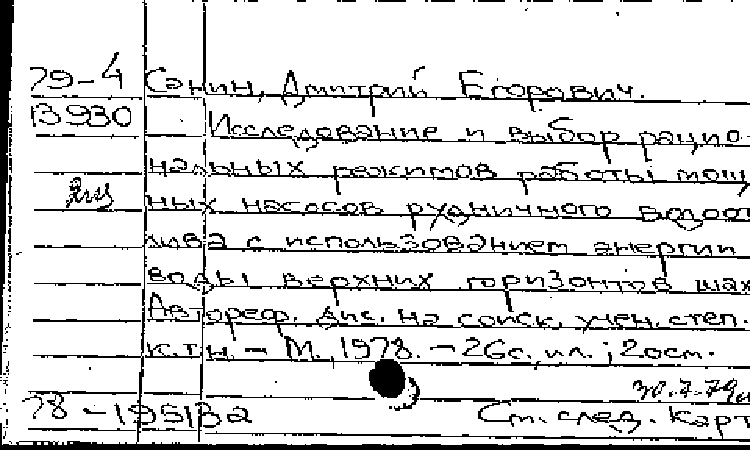 79-4 Санин, Дмитрий Егорович.
13930 Исследование и выбор рацио-
нальных режимов работы мощ
2хч
ных насосов рудничного водоот
лива с использованием энергии
воды верхних горизонтов шах
Автореф. дис. на соиск. учен. степ.
к.т.н. - М., 1978. - 26 с., ил.; 20 см.
30.7.79
78-19513а См. след. карт